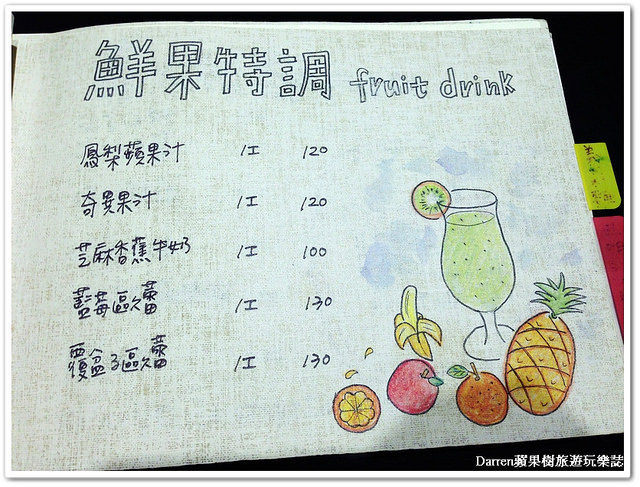 鮮果特調 fruit drink
鳳梨蘋果汁 /I 120
奇異果汁 /I 120
芝麻香蕉牛奶 /I 100
藍莓區欠蕾 /I 130
覆盆子區欠蕾 /I 130
Darren蘋果樹旅遊玩樂誌